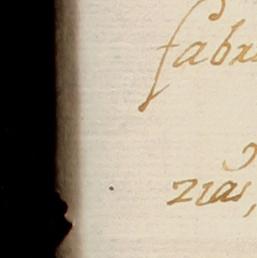 fabri
zias,